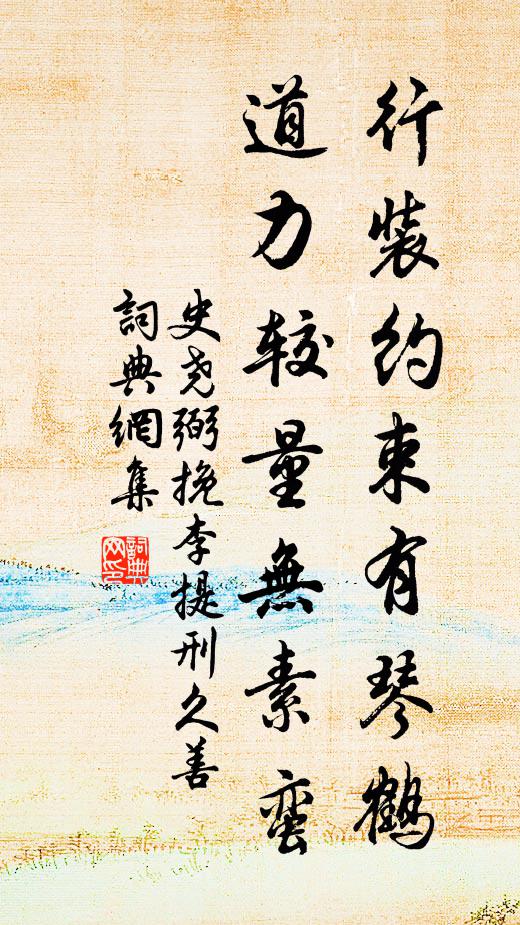 行装约束有琴鹤
道力较量無素蛮
史尧弼挽李提刑久善
詞典網集
詞典网印